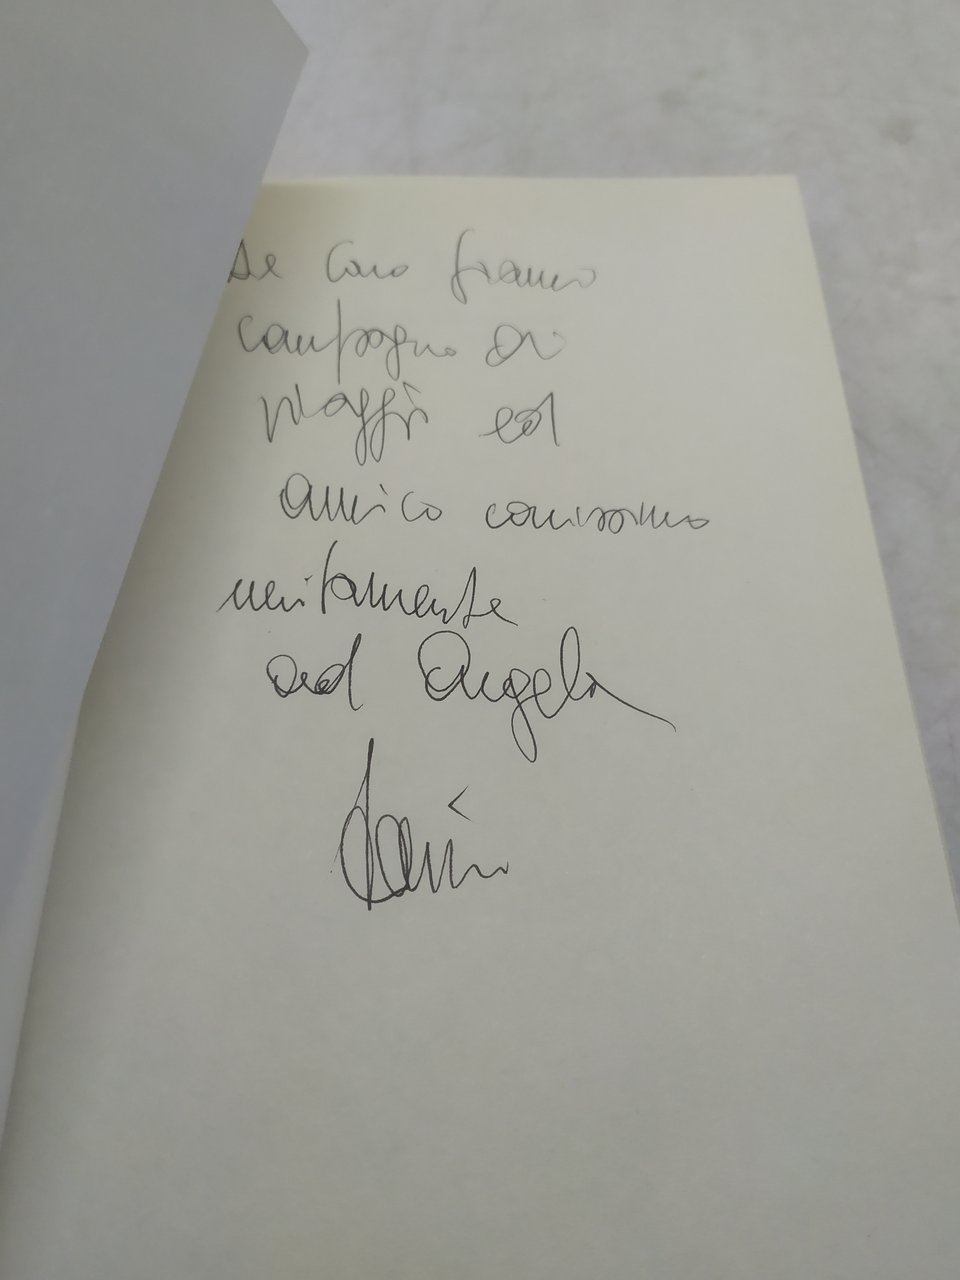 Al Caro Franco
compagno di
viaggi ed
amico carissimo
unitamente
ad Angela